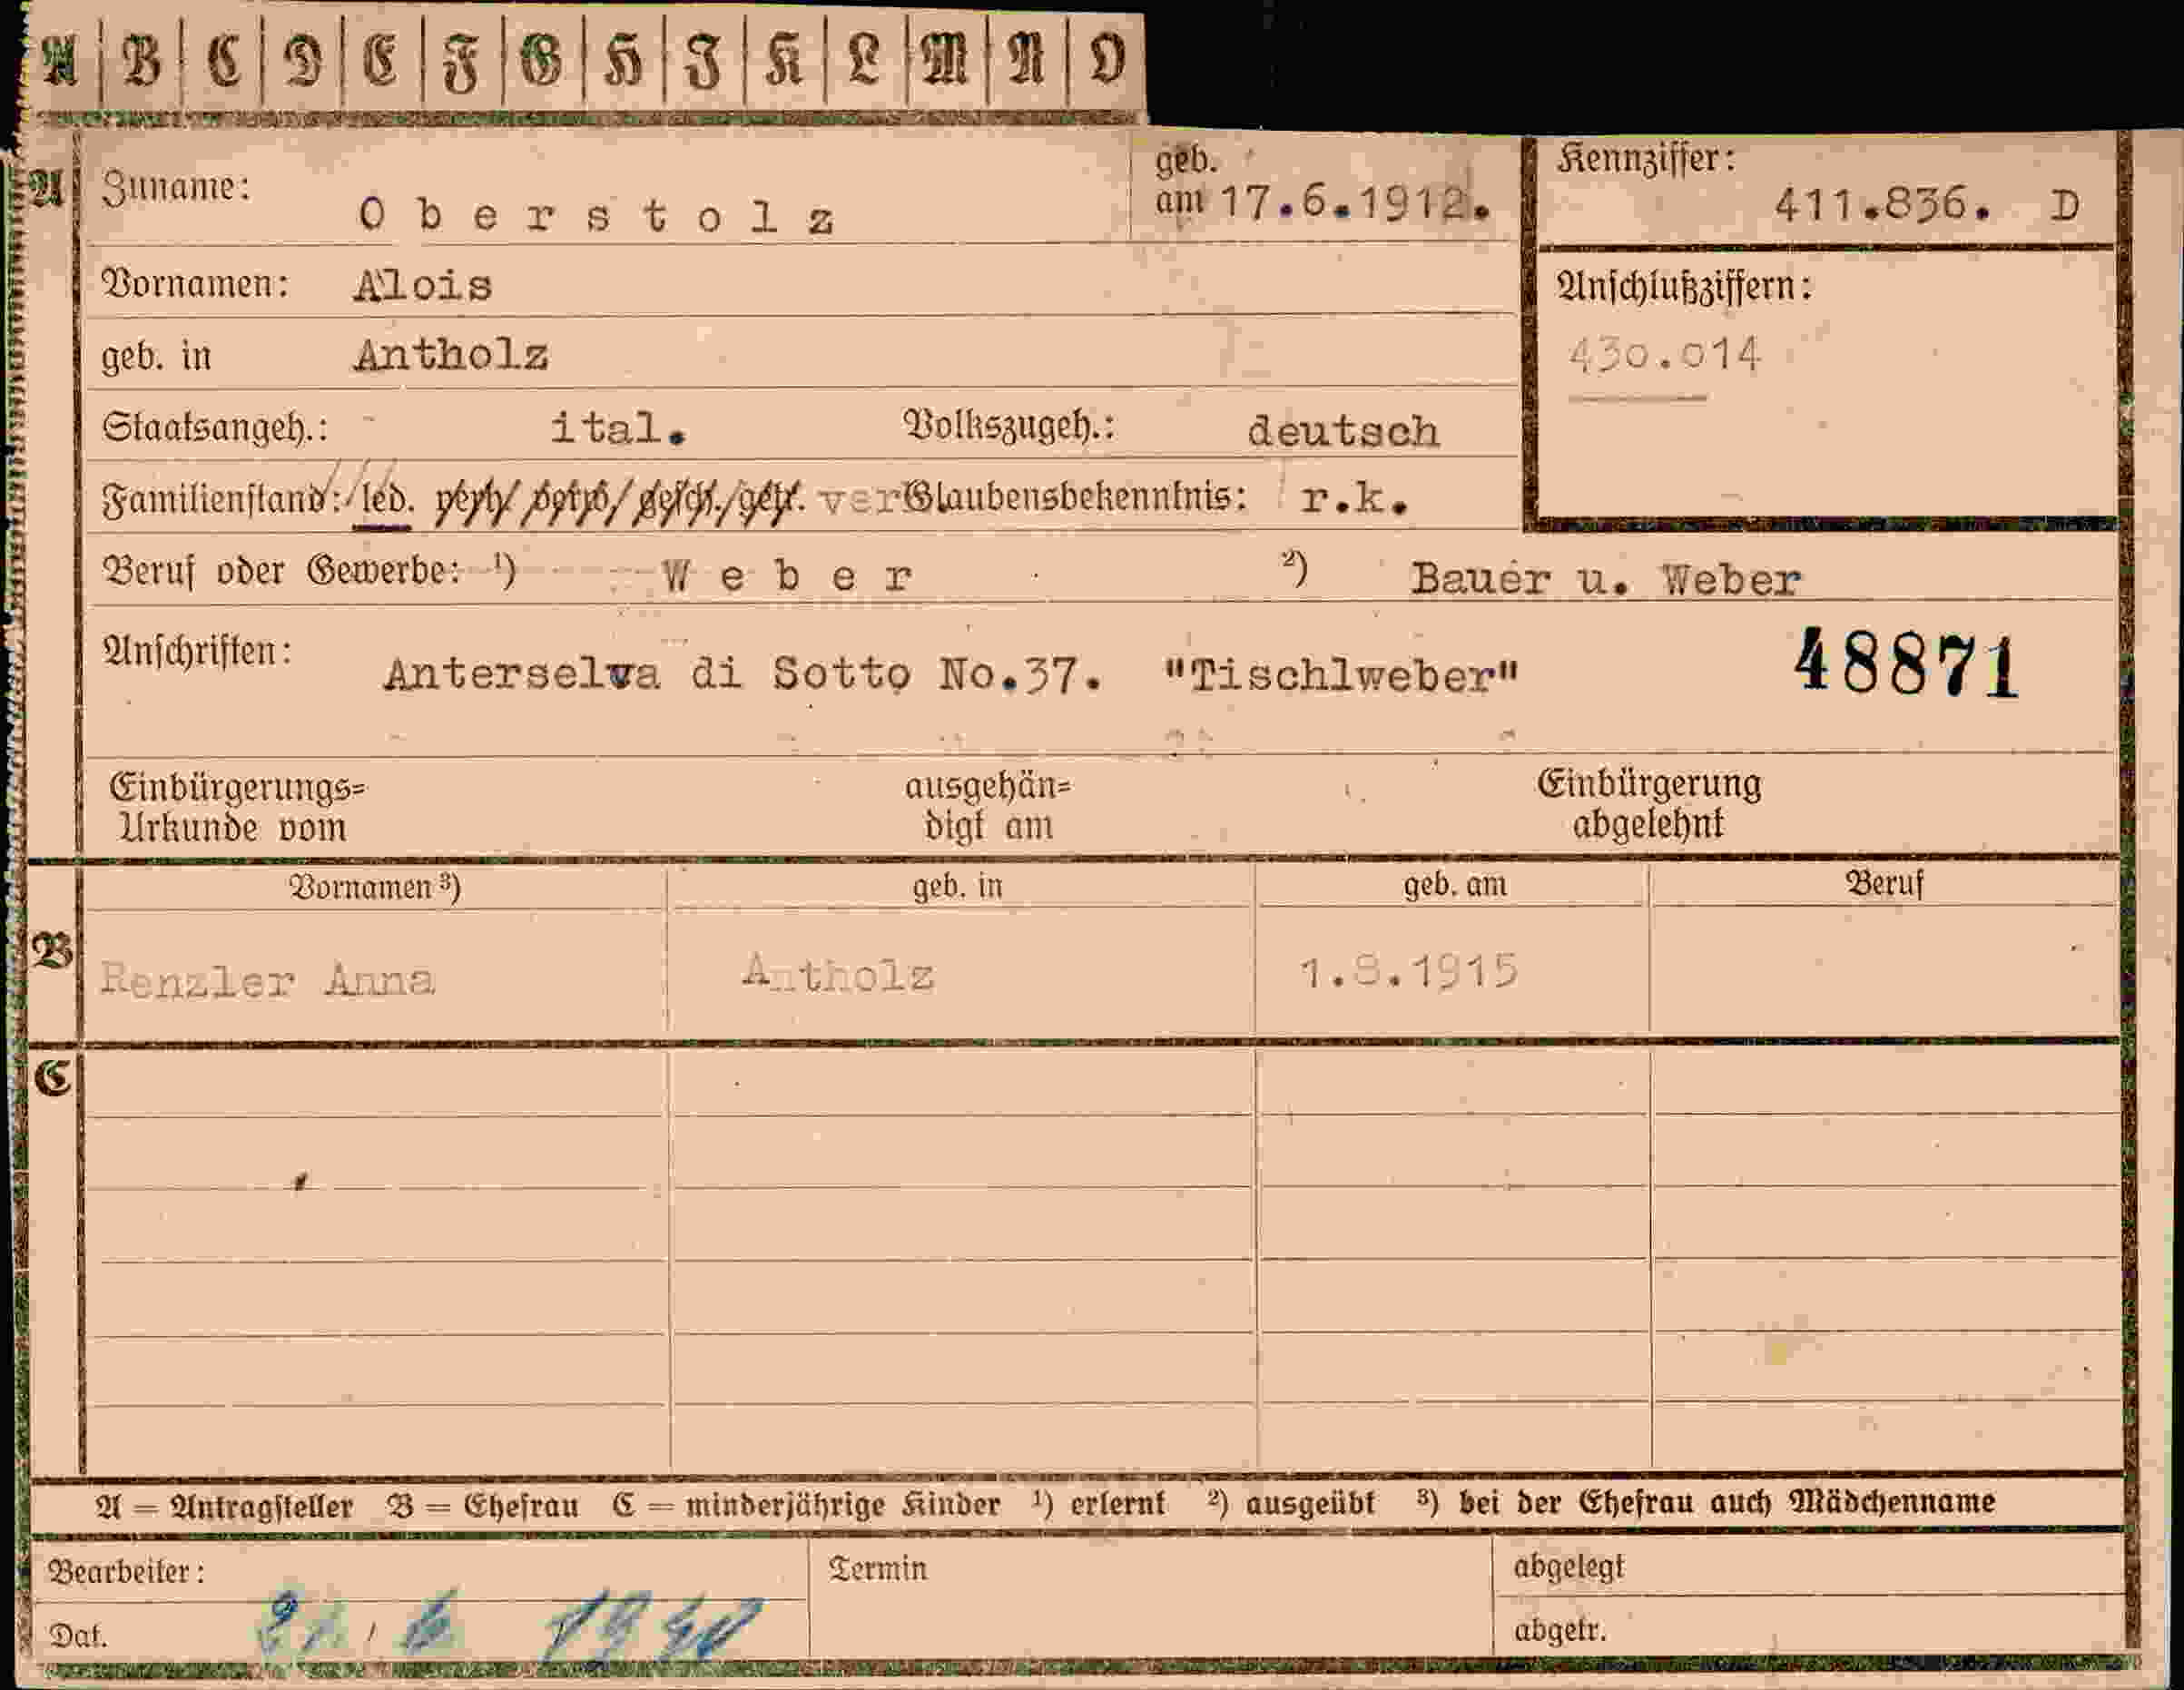 A B C D E F G H I K L M N O
A
Zuname: Oberstolz
geb. am 17.6.1912.
Kennziffer: 411.836. D
Vornamen: Alois
Anschlußziffern:
430.014
geb. in Antholz
Staatsangeh.: ital. Volkszugeh.: deutsch
Familienstand: led. verh. verw. gesch. getr. ver Glaubensbekenntnis: r.k.
Beruf oder Gewerbe: ¹) Weber ²) Bauer u. Weber
Anschriften: Anterselva di Sotto No.37. "Tischlweber" 48871
Einbürgerungs= ausgehän= Einbürgerung
Urkunde vom digt am abgelehnt
Vornamen ³) geb. in geb. am Beruf
B Renzler Anna Antholz 1.8.1915
C
A = Antragsteller B = Ehefrau C = minderjährige Kinder ¹) erlernt ²) ausgeübt ³) bei der Ehefrau auch Mädchenname
Bearbeiter: Termin abgelegt
Dat. 21/6 1940 abgetr.